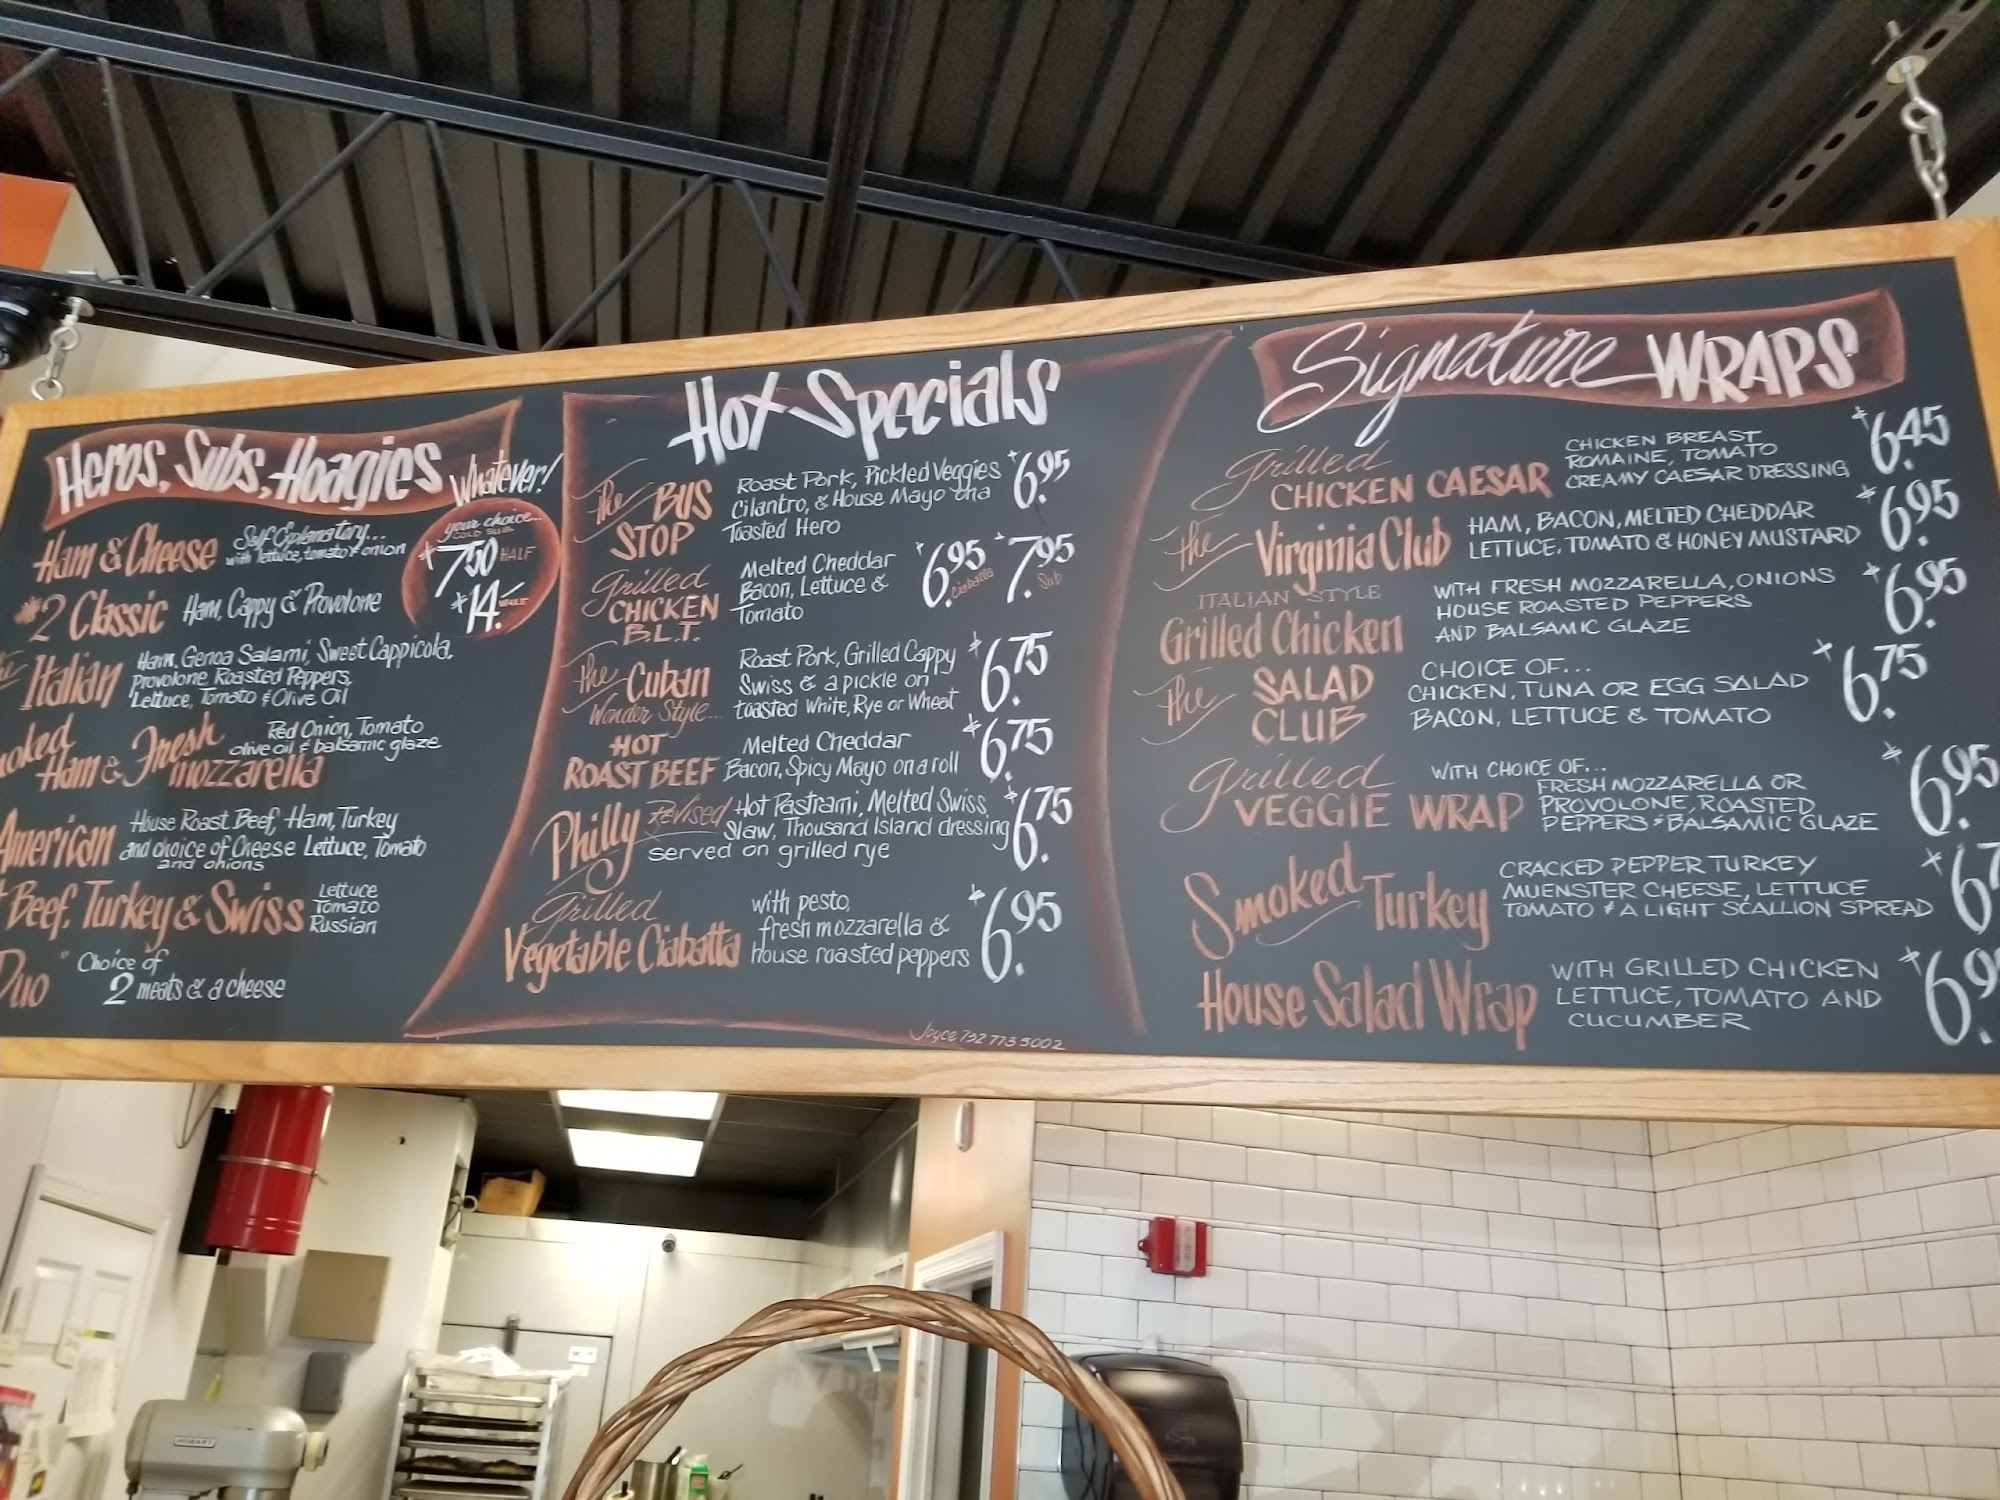 Heros, Subs, Hoagies Whatever!
your choice...
COLD SUB
$7.50 HALF
$14. WHOLE
Ham & Cheese Self Explanatory...
with lettuce, tomato & onion
#2 Classic Ham, Cappy & Provolone
Italian Ham, Genoa Salami, Sweet Cappicola,
Provolone Roasted Peppers,
Lettuce, Tomato & Olive Oil
Ham & Fresh mozzarella Red Onion, Tomato
olive oil & balsamic glaze
American House Roast Beef, Ham, Turkey
and choice of Cheese Lettuce, Tomato
and onions
Beef, Turkey & Swiss Lettuce
Tomato
Russian
Duo" Choice of
2 meats & a cheese
Hot Specials
The BUS STOP Roast Pork, Pickled Veggies $6.95
Cilantro, & House Mayo on a
Toasted Hero
Grilled CHICKEN B.L.T. Melted Cheddar $6.95 Ciabatta $7.95 Sub
Bacon, Lettuce &
Tomato
The Cuban Roast Pork, Grilled Cappy $6.75
Wonder Style... Swiss & a pickle on
toasted White, Rye or Wheat
HOT ROAST BEEF Melted Cheddar $6.75
Bacon, Spicy Mayo on a roll
Philly Revised Hot Pastrami, Melted Swiss $6.75
Slaw, Thousand Island dressing
served on grilled rye
Grilled Vegetable Ciabatta with pesto, $6.95
fresh mozzarella &
house roasted peppers
Joyce 732 773 5002
Signature WRAPS
Grilled CHICKEN CAESAR CHICKEN BREAST $6.45
ROMAINE, TOMATO
CREAMY CAESAR DRESSING
The Virginia Club HAM, BACON, MELTED CHEDDAR $6.95
LETTUCE, TOMATO & HONEY MUSTARD
ITALIAN STYLE
Grilled Chicken WITH FRESH MOZZARELLA, ONIONS $6.95
HOUSE ROASTED PEPPERS
AND BALSAMIC GLAZE
The SALAD CLUB CHOICE OF... $6.75
CHICKEN, TUNA OR EGG SALAD
BACON, LETTUCE & TOMATO
Grilled VEGGIE WRAP WITH CHOICE OF... $6.95
FRESH MOZZARELLA OR
PROVOLONE, ROASTED
PEPPERS & BALSAMIC GLAZE
Smoked Turkey CRACKED PEPPER TURKEY
MUENSTER CHEESE, LETTUCE
TOMATO & A LIGHT SCALLION SPREAD
House Salad Wrap WITH GRILLED CHICKEN
LETTUCE, TOMATO AND
CUCUMBER
HOBART